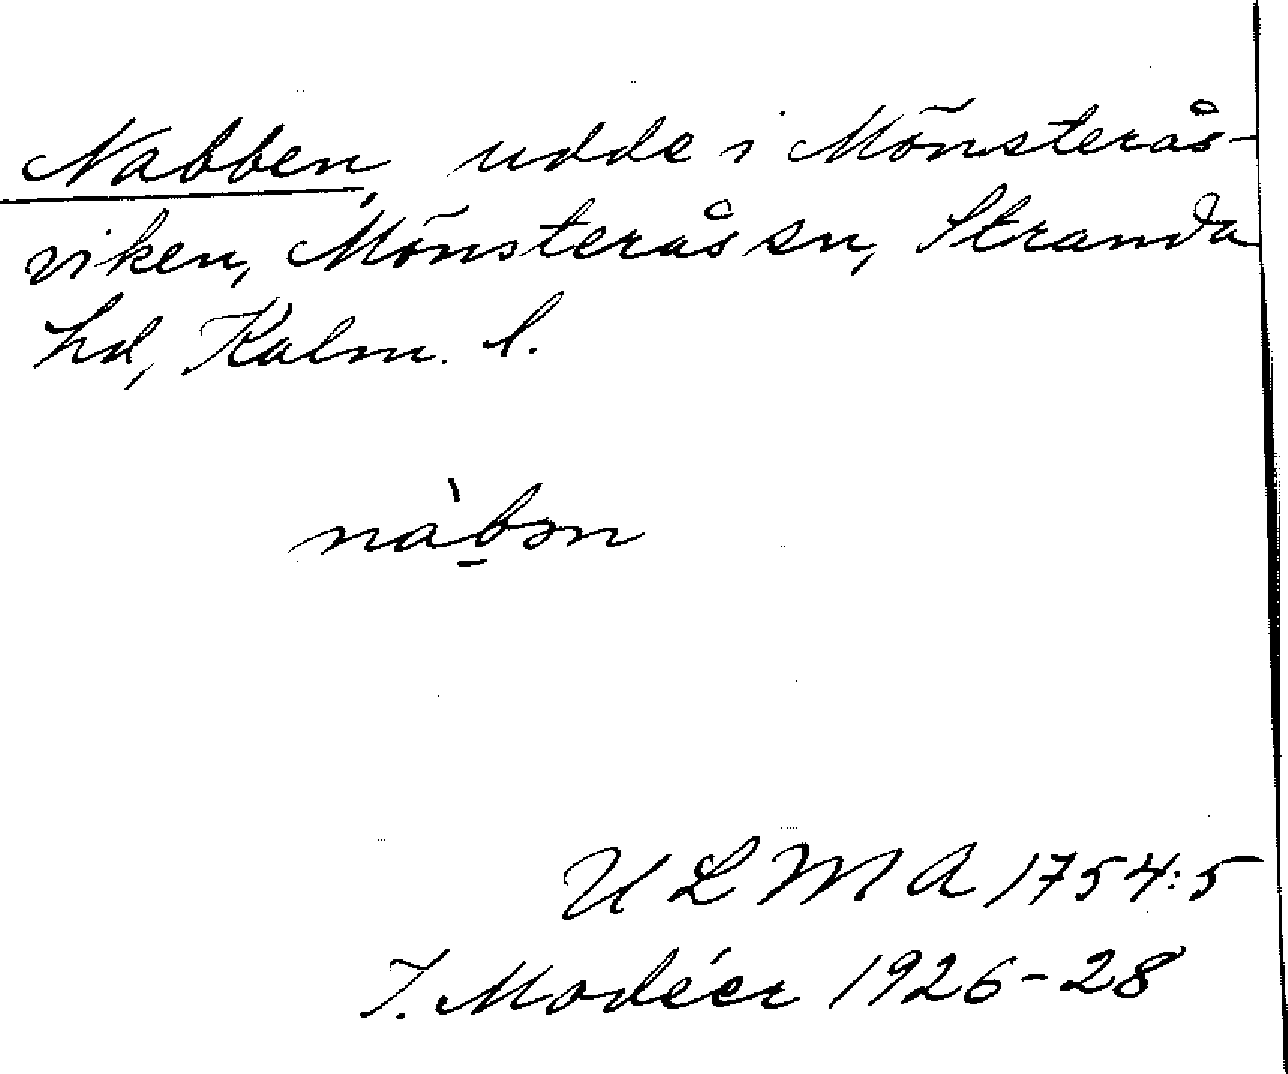 Nabben, udde i Mönsterås-
viken, Mönsterås sn, Stranda
hd, Kalm. l.
nàb̲ən
ULMA 1754:5
I. Modéer 1926-28